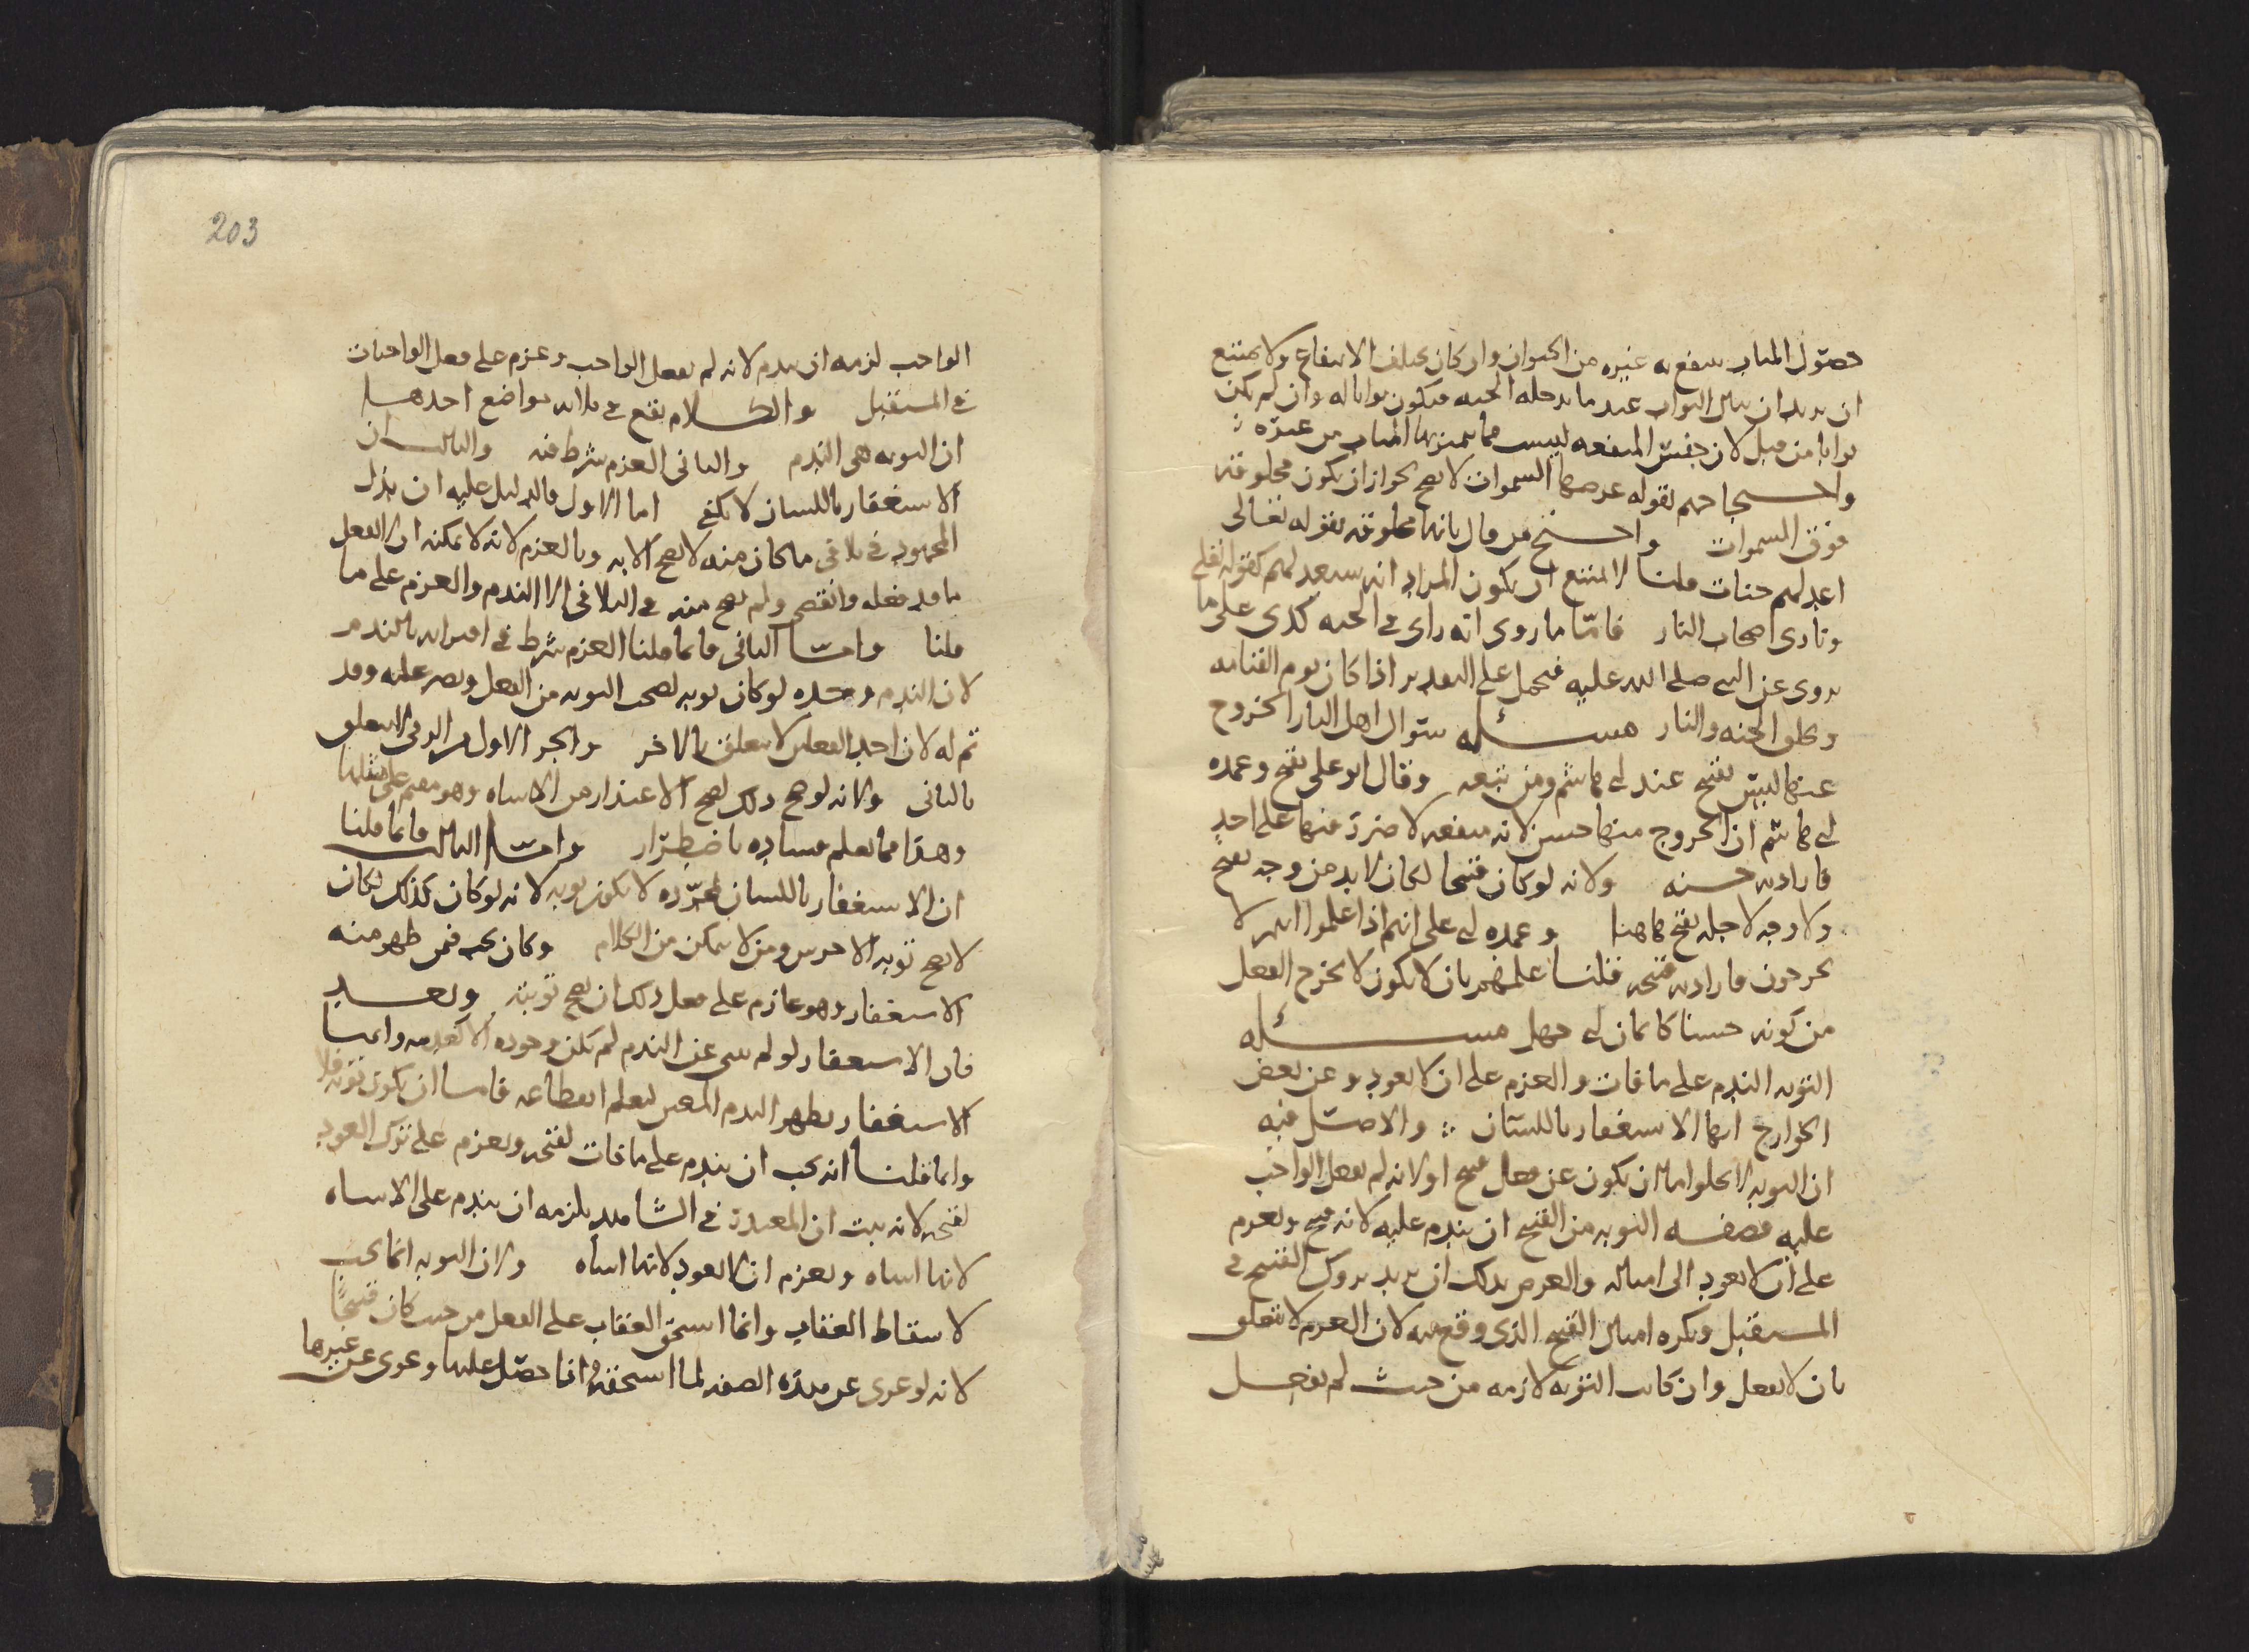 حصول المثاب ينتفع به غيره من الحيوان وان كان يختلف الانتفاع ولا يمتنع
ان يريد ان ينال الثواب عند ما يدخله الجنه فيكون ثوابا له وان لم يكن
ثوابا من قبل لان جنس المنفعه ليست مما يتميز بها المثاب من غيره
واحتجاجهم بقوله عرضها السموات لا يصح لجواز ان يكون مخلوقه
فوق السموات واحتج من قال بانها مخلوقه بقوله تعالى
اعد لهم جنات قلنا لا يمتنع ان يكون المراد انه سيعد لهم كقوله تعلى
ونادى اصحاب النار فامّا ما روى انه راى في الجنه كذى على ما
يروى عن النبي صلى الله عليه فيحمل على التقدير اذا كان يوم القيامه
وخلق الجنه والنار مسئله سؤال اهل النار الخروج
عنها ليس بقبيح عند ابي هاشم ومن تبعه وقال ابو على يقبح وعمده
ابي هاشم ان الخروج منها حسن لانه منفعه لا ضرر فيها على احد
فارادته حسنه ولانه لو كان قبيحا لكان لا بد من وجه يقبح
ولا وجه لاجله يقبح هاهنا وعمده ابي على انهم اذا علموا انهم لا
يخرجون فارادته قبيحه قلنا علمهم بان لا يكون لا يخرج الفعل
من كونه حسنا كايمان ابي جهل مسئله
التوبه الندم على ما فات والعزم على ان لا يعود وعن بعض
الخوارج انها الاستغفار باللسان والاصل فيه
ان التوبه لا يخلوا اما ان يكون عن فعل قبيح او لانه لم يفعل الواجب
عليه فصفه التوبه من القبيح ان يندم عليه لانه قبيح ويعزم
على ان لا يعود الى امثاله والغرض بذلك ان يريد تروك القبيح في
المستقبل ويكره امثال القبيح الذى وقع منه لان العزم لا يتعلق
بان لا يفعل وان كانت التوبه لازمه من حيث لم يفعل
203
الواجب لزمه ان يندم لانه لم يفعل الواجب وعزم على فعل الواجبات
في المستقبل والكلام يقع في ثلاثه مواضع احدها
ان التوبه هي الندم والثانى العزم شرط فيه والثالث ان
الاستغفار باللسان لا يكفي اما الاول فالدليل عليه ان بذل
المجهود في تلافى ما كان منه لا يصح الا به وبالعزم لانه لا يمكنه ان لا يفعل
ما قد فعله وانقضى ولم يصح منه في التلافى الا الندم والعزم على ما
قلنا وامّا الثانى فانما قلنا العزم شرط في اقترانه بالندم
لان الندم وحده لو كان توبه لصحت التوبه من الفعل ويصر عليه وقد
ثم له لان احد الفعلين لا يتعلق بالاخر
بالثانى ولانه لو صح ذلك لصح الاعتذار من الاساه وهو مقيم على مثلها
وهذا مما يعلم فساده باضطرار وامّا الثالث فانما قلنا
ان الاستغفار باللسان بمجرّده لا يكون توبه لانه لو كان كذلك لكان
لا يصح توبه الاخرس ومن لا يتمكن من الكلام وكان يجب فيمن ظهر منه
الاستغفار وهو عازم على فعل ذلك ان يصح توبته وبعد
فان الاستغفار لو لم ينبي عن الندم لم يكن وجوده الا كعدمه وانما
الاستغفار يظهر الندم
وانما قلنا انه يجب ان يندم على ما فات لقبحه ويعزم على ترك العود
لقبحه لانه ثبت ان المعتذر في الشاهد يلزمه ان يندم على الاساه
لانها اساه ويعزم ان لا يعود لانها اساه ولان التوبه انما يجب
لاسقاط العقاب وانما استحق العقاب على الفعل من حيث كان قبيحًا
لانه لو عرى عن هذه الصفه لما استحقه وانما حصل عليها وعرى عن غيرها